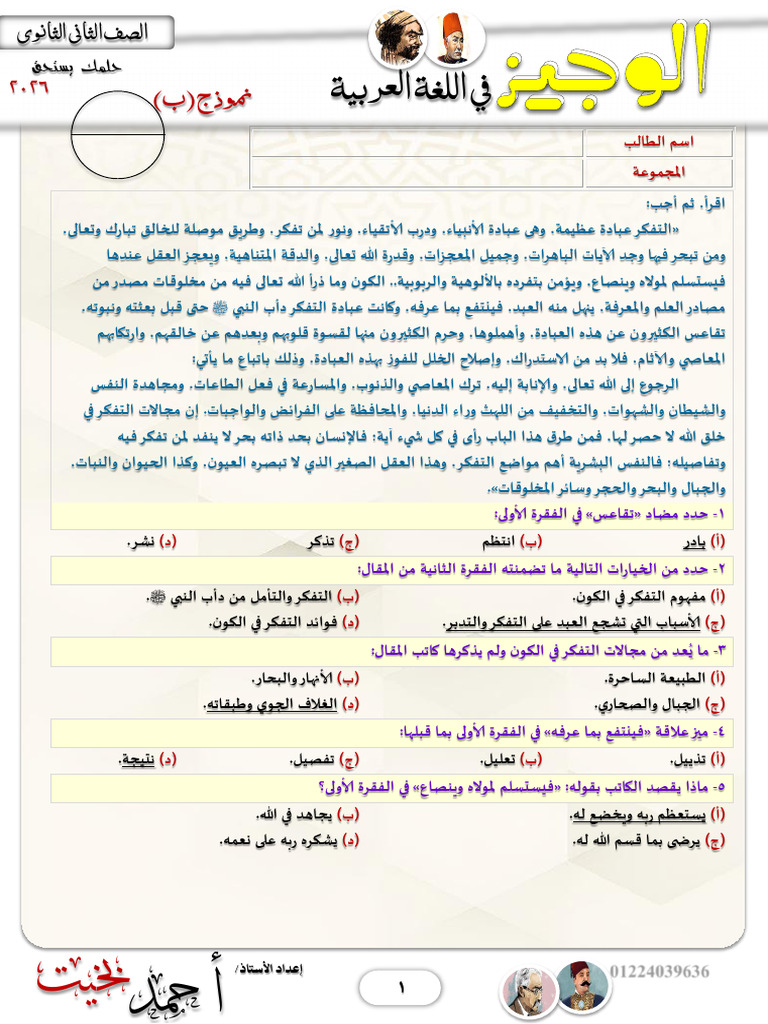 الصف الثانى الثانوى
حلمك يستحق
٢٠٢٦
الوجيز
في اللغة العربية
نموذج (ب)
اسم الطالب
المجموعة
اقرأ، ثم أجب:
«التفكر عبادة عظيمة، وهى عبادة الأنبياء، ودرب الأتقياء، ونور لمن تفكر، وطريق موصلة للخالق تبارك وتعالى،
ومن تبحر فيها وجد الآيات الباهرات، وجميل المعجزات، وقدرة الله تعالى، والدقة المتناهية، ويعجز العقل عندها
فيستسلم لمولاه وينصاع، ويؤمن بتفرده بالألوهية والربوبية.. الكون وما ذرأ الله تعالى فيه من مخلوقات مصدر من
مصادر العلم والمعرفة، ينهل منه العبد، فينتفع بما عرفه، وكانت عبادة التفكر دأب النبي ﷺ حتى قبل بعثته ونبوته،
تقاعس الكثيرون عن هذه العبادة، وأهملوها، وحرم الكثيرون منها لقسوة قلوبهم وبعدهم عن خالقهم، وارتكابهم
المعاصي والآثام، فلا بد من الاستدراك، وإصلاح الخلل للفوز بهذه العبادة، وذلك باتباع ما يأتي:
الرجوع إلى الله تعالى، والإنابة إليه، ترك المعاصي والذنوب، والمسارعة في فعل الطاعات، ومجاهدة النفس
والشيطان والشهوات، والتخفيف من اللهث وراء الدنيا، والمحافظة على الفرائض والواجبات، إن مجالات التفكر في
خلق الله لا حصر لها، فمن طرق هذا الباب رأى في كل شيء آية: فالإنسان بحد ذاته بحر لا ينفد لمن تفكر فيه
وتفاصيله: فالنفس البشرية أهم مواضع التفكر، وهذا العقل الصغير الذي لا تبصره العيون، وكذا الحيوان والنبات،
والجبال والبحر والحجر وسائر المخلوقات».
١- حدد مضاد «تقاعس» في الفقرة الأولى:
(أ) بادر (ب) انتظم (ج) تذكر (د) نشر.
٢- حدد من الخيارات التالية ما تضمنته الفقرة الثانية من المقال:
(أ) مفهوم التفكر في الكون. (ب) التفكر والتأمل من دأب النبي ﷺ.
(ج) الأسباب التي تشجع العبد على التفكر والتدبر. (د) فوائد التفكر في الكون.
٣- ما يُعد من مجالات التفكر في الكون ولم يذكرها كاتب المقال:
(أ) الطبيعة الساحرة. (ب) الأنهار والبحار.
(ج) الجبال والصحاري. (د) الغلاف الجوي وطبقاته.
٤- ميز علاقة «فينتفع بما عرفه» في الفقرة الأولى بما قبلها:
(أ) تذييل. (ب) تعليل. (ج) تفصيل. (د) نتيجة.
٥- ماذا يقصد الكاتب بقوله: «فيستسلم لمولاه وينصاع» في الفقرة الأولى؟
(أ) يستعظم ربه ويخضع له. (ب) يجاهد في الله.
(ج) يرضى بما قسم الله له. (د) يشكره ربه على نعمه.
إعداد الأستاذ/
أحمد بخيت
١
01224039636